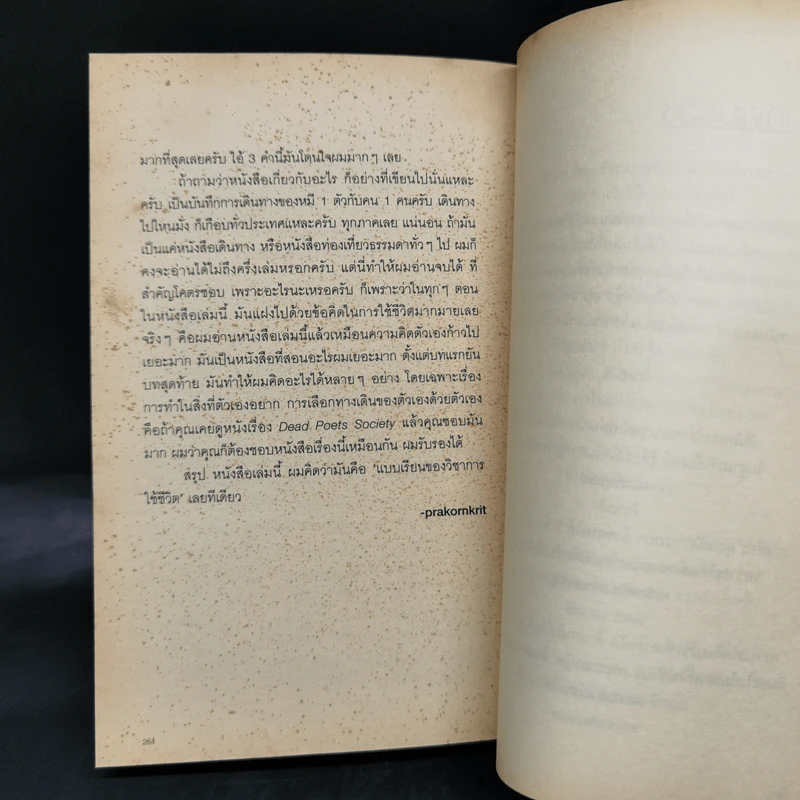 มากที่สุดเลยครับ ไอ้ 3 คำนี้มันโดนใจผมมากๆ เลย
ถ้าถามว่าหนังสือเกี่ยวกับอะไร ก็อย่างที่เขียนไปนั่นแหละ
ครับ เป็นบันทึกการเดินทางของหมี 1 ตัวกับคน 1 คนครับ เดินทาง
ไปไหนมั่ง ก็เกือบทั่วประเทศแหละครับ ทุกภาคเลย แน่นอน ถ้ามัน
เป็นแค่หนังสือเดินทาง หรือหนังสือท่องเที่ยวธรรมดาทั่วๆ ไป ผมก็
คงจะอ่านได้ไม่ถึงครึ่งเล่มหรอกครับ แต่นี่ทำให้ผมอ่านจบได้ ที่
สำคัญโคตรชอบ เพราะอะไรนะเหรอครับ ก็เพราะว่าในทุกๆ ตอน
ในหนังสือเล่มนี้ มันแฝงไปด้วยข้อคิดในการใช้ชีวิตมากมายเลย
จริงๆ คือผมอ่านหนังสือเล่มนี้แล้วเหมือนความคิดตัวเองก้าวไป
เยอะมาก มันเป็นหนังสือที่สอนอะไรผมเยอะมาก ตั้งแต่บทแรกยัน
บทสุดท้าย มันทำให้ผมคิดอะไรได้หลายๆ อย่าง โดยเฉพาะเรื่อง
การทำในสิ่งที่ตัวเองอยาก การเลือกทางเดินของตัวเองด้วยตัวเอง
คือถ้าคุณเคยดูหนังเรื่อง Dead Poets Society แล้วคุณชอบมัน
มาก ผมว่าคุณก็ต้องชอบหนังสือเรื่องนี้เหมือนกัน ผมรับรองได้
สรุป หนังสือเล่มนี้ ผมคิดว่ามันคือ 'แบบเรียนของวิชาการ
ใช้ชีวิต' เลยทีเดียว
-prakornkrit
264